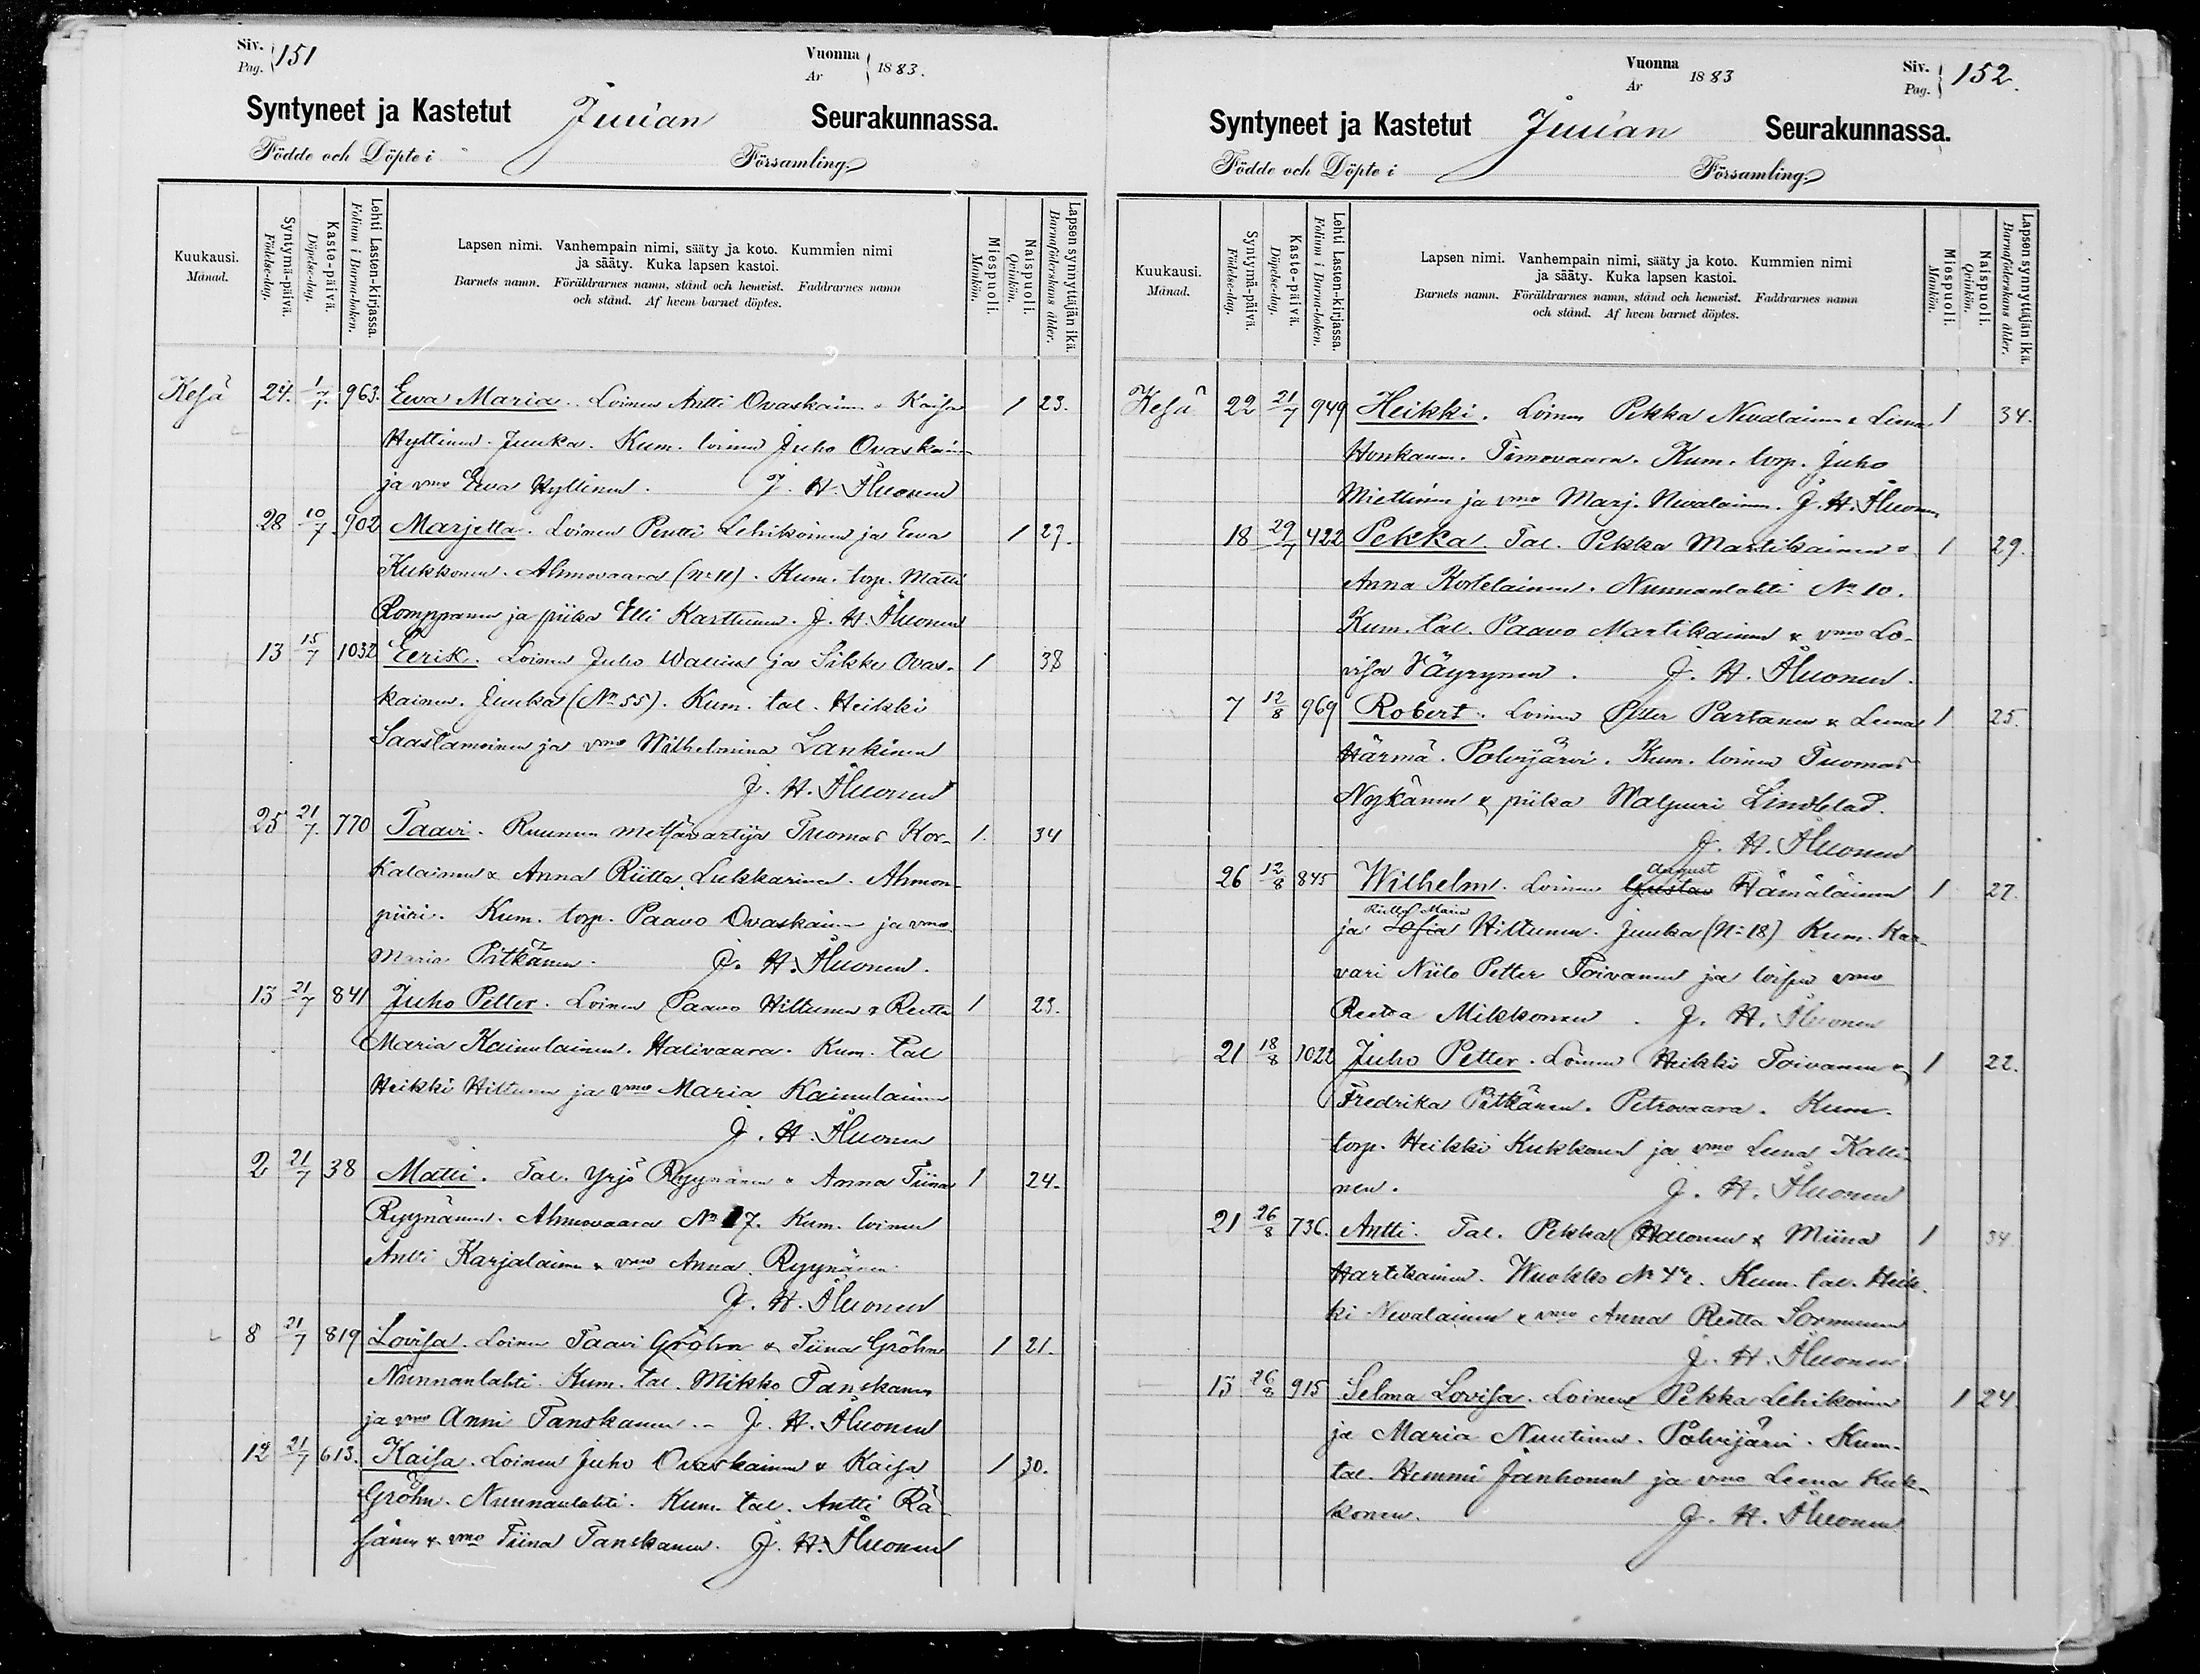 Siv. Pag. 151
Vuonna År 1883.
Syntyneet ja Kastetut Juuan Seurakunnassa.
Födde och Döpte i Församling.
Kuukausi. Månad.
Syntymä-päivä. Födelse-dag.
Kaste-päivä. Döpelse-dag.
Lehti Lasten-kirjassa. Folium i Barna-boken.
Lapsen nimi. Vanhempain nimi, sääty ja koto. Kummien nimi
ja sääty. Kuka lapsen kastoi.
Barnets namn. Föräldrarnes namn, stånd och hemvist. Faddrarnes namn
och stånd. Af hvem barnet döptes.
Miespuoli. Mankön.
Naispuoli. Qvinkön.
Lapsen synnyttäjän ikä. Barnaföderskans ålder.
Kesä 24. 1/7. 963. Ewa Maria. Loinen Antti Ovaskainen & Kaisa 1 23.
Hyttinen. Juuka. Kum. loinen Juho Ovaskainen
ja vmo Eeva Hyttinen. J. H. Åhuonen
28 10/7 902 Marjetta. Loinen Pentti Lehikoinen ja Eeva 1 27.
Kukkonen. Ahmovaara (No 11). Kum. torp. Matti
Romppanen ja piika Elli Karttunen. J. H. Åhuonen
13 15/7 1032 Eerik. Loinen Juho Wallius ja Sikke Ovas- 1 38
kainen. Juuka (No 55). Kum. tal. Heikki
Saastamoinen ja vmo Wilhelmina Lankinen
J. H. Åhuonen
25 21/7. 770 Taavi. Ruunun metsävartija Tuomas Kor- 1. 34
kalainen & Anna Riitta Lukkarinen. Ahmon-
piiri. Kum. torp. Paavo Ovaskainen ja vmo
Maria Pitkänen. J. H. Åhuonen.
13 21/7 841 Juho Petter. Loinen Paavo Hiltunen & Reetta 1 23.
Maria Kainulainen. Halivaara. Kum. tal
Heikki Hiltunen ja vmo Maria Kainulainen
J. H. Åhuonen
2 21/7 38 Matti. Tal. Yrjö Ryynänen & Anna Tiina 1 24.
Ryynänen. Ahmovaara No 17. Kum. loinen
Antti Karjalainen & vmo Anna Ryynänen.
J. H. Åhuonen
8 21/7 819 Lovisa. Loinen Taavi Gröhn & Tiina Gröhn 1 21.
Nunnanlahti. Kum. tal. Mikko Tanskanen
ja vmo Anni Tanskanen. - J. H. Åhuonen
12 21/7 613. Kaisa. Loinen Juho Ovaskainen & Kaisa 1 30.
Gröhn. Nunnanlahti. Kum. tal. Antti Rä-
sänen & vmo Tiina Tanskanen. J. H. Åhuonen
Vuonna År 1883
Siv. Pag. 152.
Syntyneet ja Kastetut Juuan Seurakunnassa.
Födde och Döpte i Församling.
Kuukausi. Månad.
Syntymä-päivä. Födelse-dag.
Kaste-päivä. Döpelse-dag.
Lehti Lasten-kirjassa. Folium i Barna-boken.
Lapsen nimi. Vanhempain nimi, sääty ja koto. Kummien nimi
ja sääty. Kuka lapsen kastoi.
Barnets namn. Föräldrarnes namn, stånd och hemvist. Faddrarnes namn
och stånd. Af hvem barnet döptes.
Miespuoli. Mankön.
Naispuoli. Qvinkön.
Lapsen synnyttäjän ikä. Barnaföderskans ålder.
Kesä 22 21/7 949 Heikki. Loinen Pekka Nevalainen & Leena 1 34.
Honkanen. Timovaara. Kum. torp. Juho
Miettinen ja vmo Marj. Nevalainen. J. H. Åhuonen
18 29/7 422 Pekka. Tal. Pekka Martikainen & 1 29.
Anna Kortelainen. Nunnanlahti No 10.
Kum. tal. Paavo Martikainen & vmo Lo-
visa Väyrynen. J. H. Åhuonen.
7 12/8 969 Robert. Loinen Petter Partanen & Leena 1 25.
Härmä. Polvijärvi. Kum. loinen Tuomas
Nozkänen & piika Walpuri Lindblad.
J. H. Åhuonen
26 12/8 845 Wilhelm. Loinen Gustav August Hämäläinen 1 27.
ja Sofia Riitta Maria Hiltunen. Juuka (No 18) Kum. Kar-
vari Niilo Petter Toivanen ja loisen vmo
Reetta Mikkonen. J. H. Åhuonen
21 18/8 1022 Juho Petter. Loinen Heikki Toivanen & 1 22.
Fredrika Pitkänen. Petrovaara. Kum.
torp. Heikki Kukkonen ja vmo Leena Kalli-
nen. J. H. Åhuonen
21 26/8 736. Antti. Tal. Pekka Halonen & Miina 1 34.
Hartikainen. Wuokko No 42. Kum. tal. Heik-
ki Nevalainen & vmo Anna Reetta Sormunen
J. H. Åhuonen
13 26/8 915 Selma Lovisa. Loinen Pekka Lehikoinen 1 24.
ja Maria Nuutinen. Polvijärvi. Kum.
tal. Hemmi Jänhonen ja vmo Leena Kuk-
konen. J. H. Åhuonen